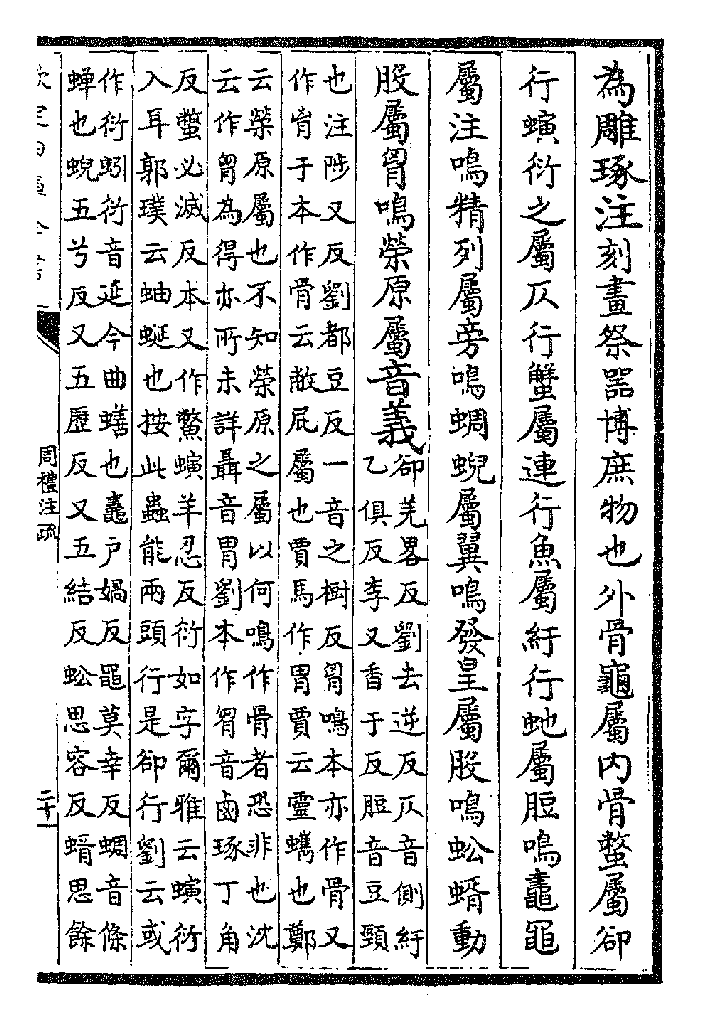 為雕琢注刻畫祭器博庶物也外骨龜屬内骨鼈屬卻
行螾衍之屬仄行蟹屬連行魚屬紆行虵屬脰鳴鼃黽
屬注鳴精列屬旁鳴蜩蜺屬翼鳴發皇屬股鳴蚣蝑動
股屬胷鳴榮原屬音義
卻羌畧反劉去逆反仄音側紆
乙俱反李又香于反脰音豆頸
也注陟又反劉都豆反一音之樹反胷鳴本亦作骨又
作骨于本作骨云敝屁屬也賈馬作胃賈云靈蠵也鄭
云榮原屬也不知榮原之屬以何鳴作骨者恐非也沈
云作胷為得亦所未詳聶音胃劉本作胷音鹵琢丁角
反鼈必滅反本又作鱉螾羊忍反衍如字爾雅云螾衍
入耳郭璞云蚰蜒也按此蟲能兩頭行是卻行劉云或
作衍蚓衍音延今曲蟮也鼃户媧反黽莫幸反蜩音條
蟬也蜺五兮反又五歷反又五結反蚣思容反蝑思餘
欽定四庫全書
周禮注疏
二十